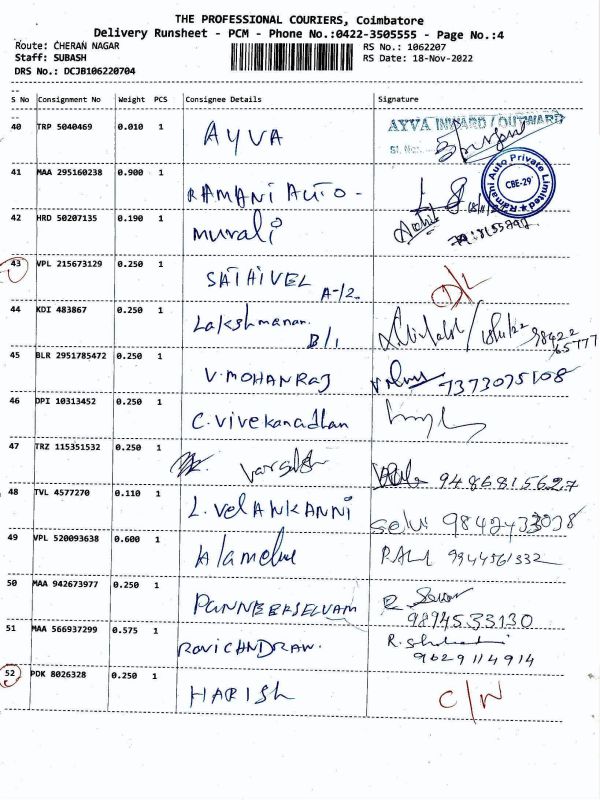 THE PROFESSIONAL COURIERS, Coimbatore
Delivery Runsheet - PCM - Phone No.:0422-3505555 - Page No.:4
Route: CHERAN NAGAR RS No.: 1062207
Staff: SUBASH RS Date: 18-Nov-2022
DRS No.: DCJB106220704
S No Consignment No Weight PCS Consignee Details Signature
40 TRP 5040469 0.010 1 AYVA AYVA INWARD / OUTWARD
Sl. No:
41 MAA 295160238 0.900 1 RAMANI AUTO - Ramani Auto Private Limited CBE-29
42 HRD 50207135 0.190 1 Murali
43 VPL 215673129 0.250 1 SATHIVEL A-12. D/L
44 KDI 483867 0.250 1 Lakshmanan. B/1 18/11/22 98422
65777
45 BLR 2951785472 0.250 1 V. MOHANRAJ 7373075108
46 DPI 10313452 0.250 1 C. Vivekanadhan
47 TRZ 115351532 0.250 1 9486815627
48 TVL 4577270 0.110 1 L. VelANKANNI Selvi 9842433038
49 VPL 520093638 0.600 1 Alamelu 9944561332
50 MAA 942673977 0.250 1 PANNEERSELVAM
9894533130
51 MAA 566937299 0.575 1 RAVICHNDRAN.
9629114914
52 PDK 8026328 0.250 1 HARISH C/N